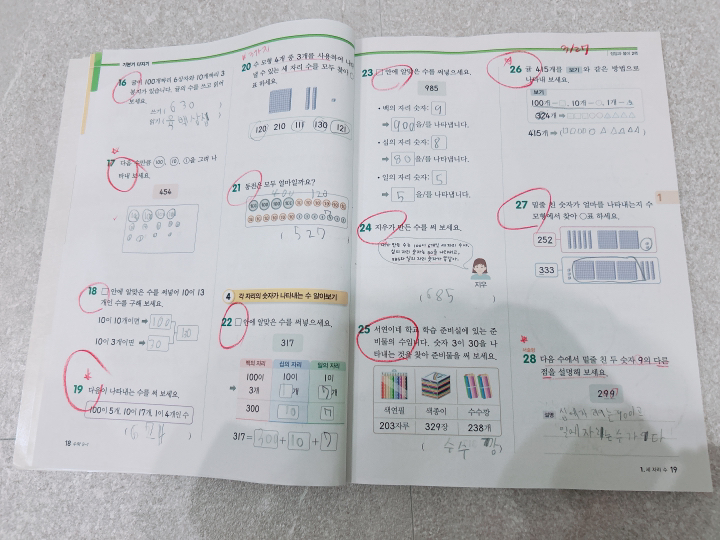 기본기 다지기
16 귤이 100개짜리 6상자와 10개짜리 3
봉지가 있습니다. 귤의 수를 쓰고 읽어
보세요.
쓰기 ( 630
읽기 ( 육백삼십
17 다음 수만큼 100, 10, 1을 그려 나
타내 보세요.
454
18 □ 안에 알맞은 수를 써넣어 10이 13
개인 수를 구해 보세요.
10이 10개이면 ➡ 100
10이 3개이면 ➡
19 다음이 나타내는 수를 써 보세요.
100이 5개, 10이 17개, 1이 4개인 수
18 수학 2-1
20 수 모형 4개 중 3개를 사용하여 나타
낼 수 있는 세 자리 수를 모두 찾아 ○
표 하세요.
120 210 111 130 121
21 동전은 모두 얼마일까요?
( 527 )
4 각 자리의 숫자가 나타내는 수 알아보기
22 □ 안에 알맞은 수를 써넣으세요.
317
백의 자리 십의 자리 일의 자리
100이 10이 1이
3개 1개 7개
300 10 7
317= 300 + 10 + 7
7/27
23 □ 안에 알맞은 수를 써넣으세요.
985
• 백의 자리 숫자: 9
➡ 900 을/를 나타냅니다.
• 십의 자리 숫자: 8
➡ 80 을/를 나타냅니다.
• 일의 자리 숫자: 5
➡ 5 을/를 나타냅니다.
24 지우가 만든 수를 써 보세요.
지우
( 685 )
25 서연이네 학교 학습 준비실에 있는 준
비물의 수입니다. 숫자 3이 30을 나
타내는 것을 찾아 준비물을 써 보세요.
색연필 색종이 수수깡
203자루 329장 238개
( 수수깡 )
26 귤 415개를 보기 와 같은 방법으로
나타내 보세요.
보기
100개-□, 10개-○, 1개-△
324개 ➡ □□□○○△△△△
415개 ➡ ( □□□□○△△△△△ )
27 밑줄 친 숫자가 얼마를 나타내는지 수
모형에서 찾아 ○표 하세요.
252
333
서술형
28 다음 수에서 밑줄 친 두 숫자 9의 다른
점을 설명해 보세요.
299
설명
1. 세 자리 수 19
1